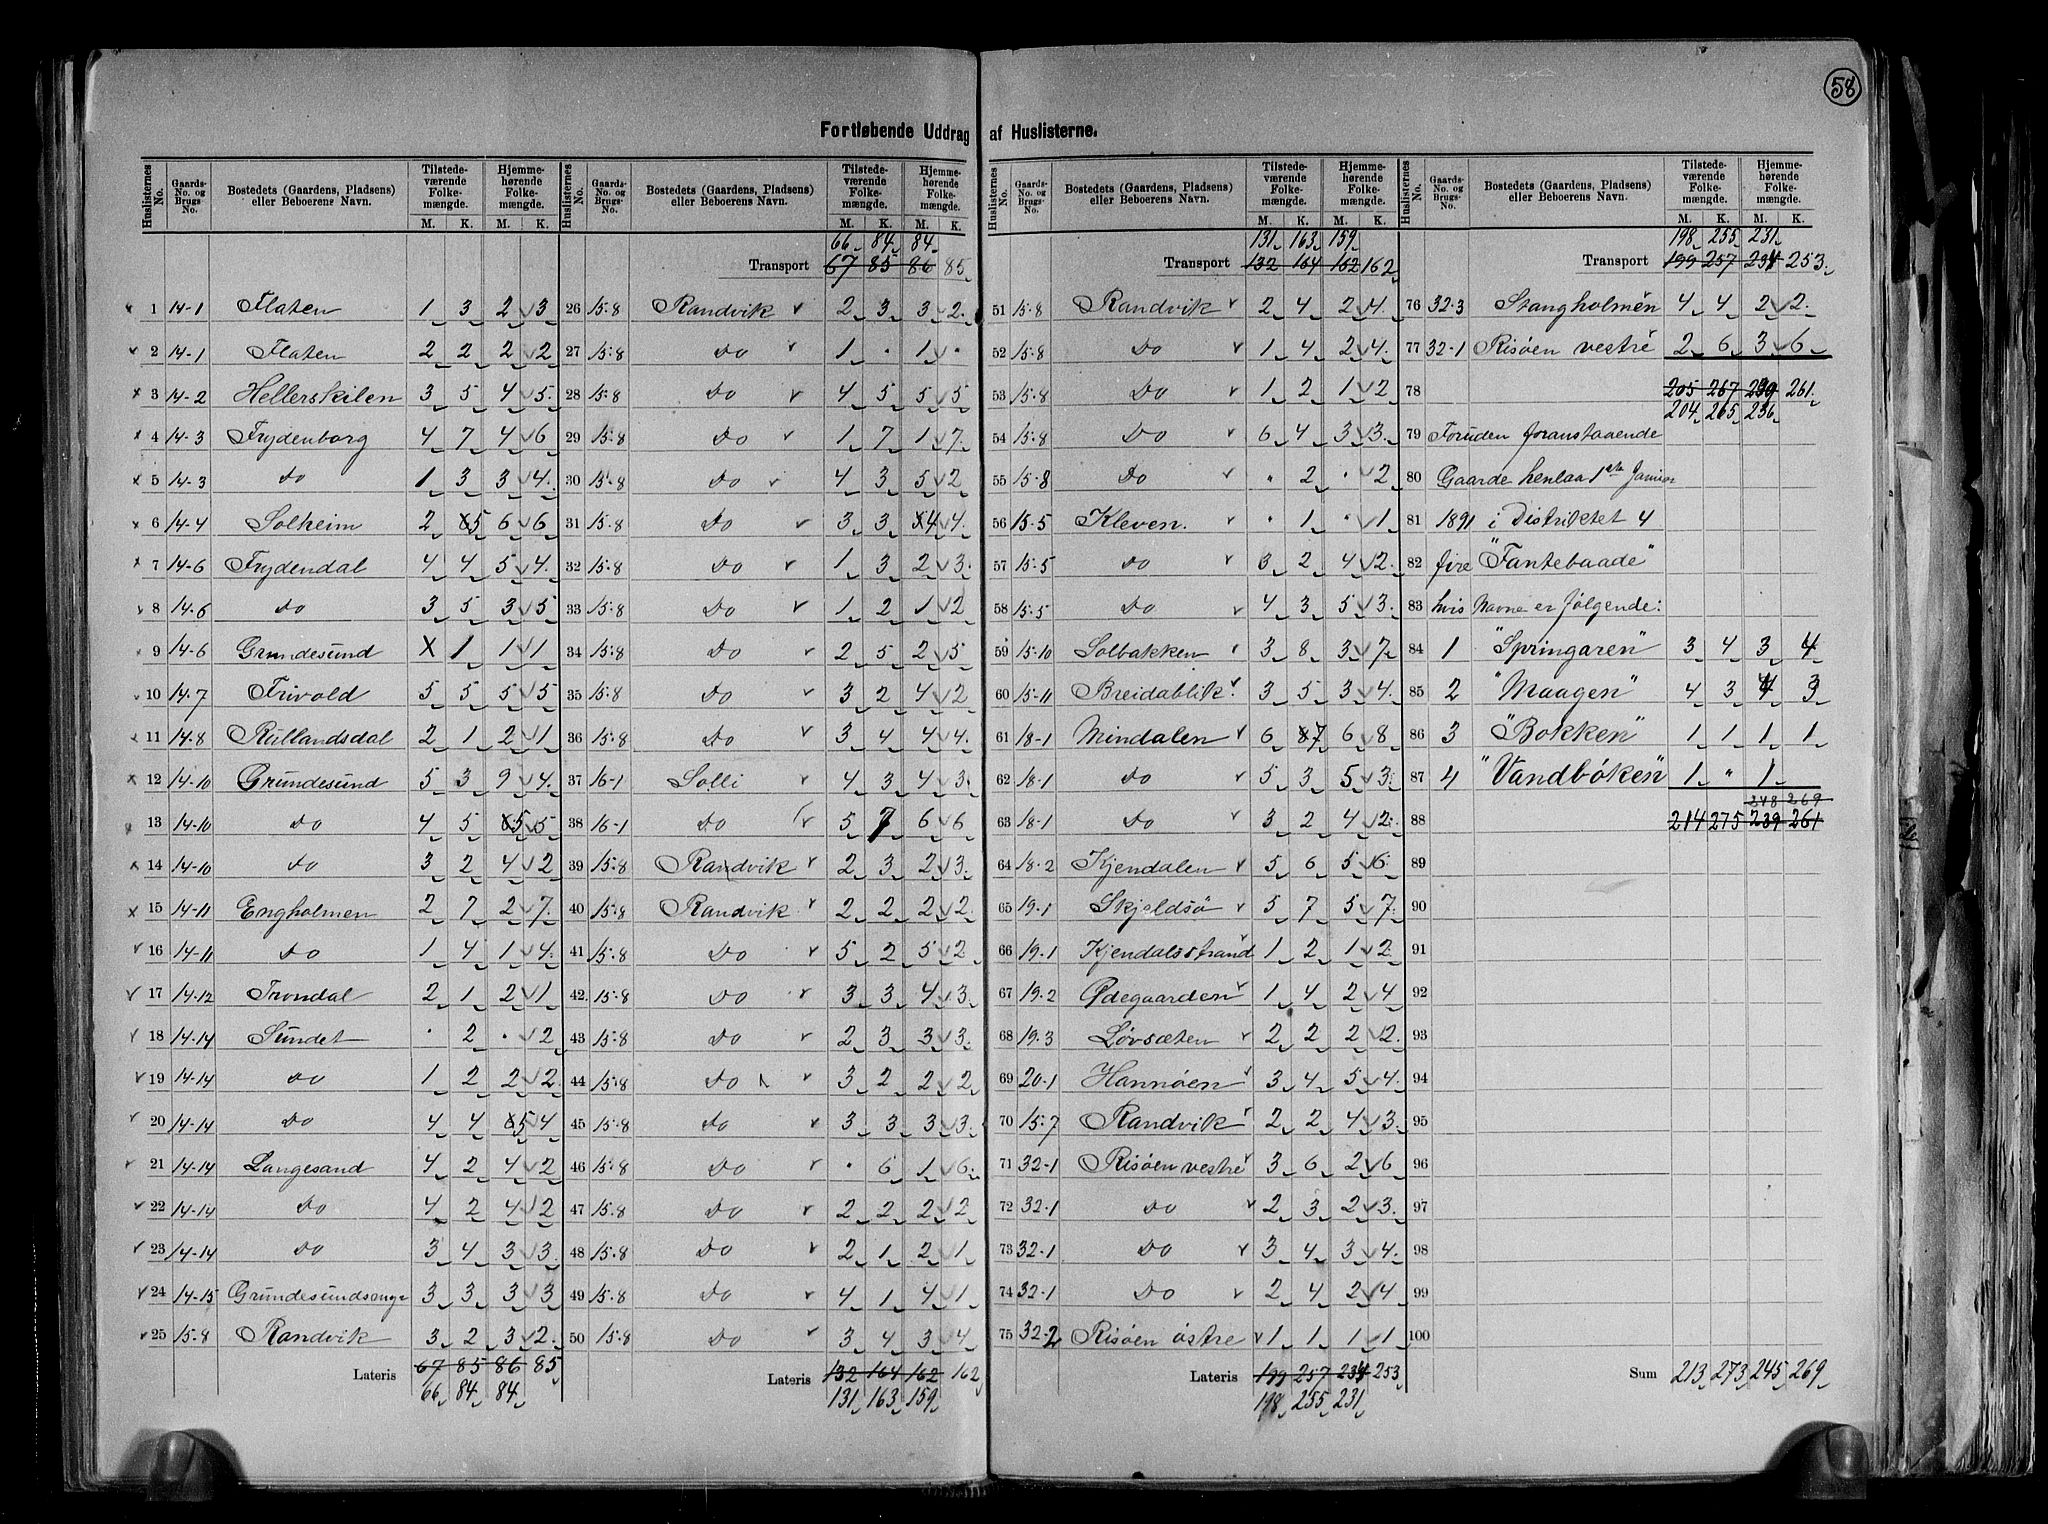 58
Fortløbende Uddrag af Huslisterne.
Huslisternes No. Gaards-No. og Brugs-No. Bostedets (Gaardens, Pladsens) eller Beboerens Navn. Tilstede-værende Folke-mængde. M. K. Hjemme-hørende Folke-mængde. M. K.
1 14-1 Flaten 1 3 2 3
2 14-1 Flaten 2 2 2 2
3 14-2 Hellerskilen 3 5 4 5
4 14-3 Frydenborg 4 7 4 6
5 14-3 Do 1 3 3 4
6 14-4 Solheim 2 5 6 6
7 14-6 Frydendal 4 4 5 4
8 14-6 Do 3 5 3 5
9 14-6 Grundesund X 1 1 1
10 14-7 Frivold 5 5 5 5
11 14-8 Rullandsdal 2 1 2 1
12 14-10 Grundesund 5 3 9 4
13 14-10 Do 4 5 5 5
14 14-10 Do 3 2 4 2
15 14-11 Engholmen 2 7 2 7
16 14-11 Do 1 4 1 4
17 14-12 Trondal 2 1 2 1
18 14-14 Sundet . 2 . 2
19 14-14 Do 1 2 2 2
20 14-14 Do 4 4 5 4
21 14-14 Langesand 4 2 4 2
22 14-14 Do 4 2 4 2
23 14-14 Do 3 4 3 3
24 14-15 Grundesundsenge 3 3 3 3
25 15-8 Randvik 3 2 3 2
Lateris 67 85 86 85
66 84 84
Huslisternes No. Gaards-No. og Brugs-No. Bostedets (Gaardens, Pladsens) eller Beboerens Navn. Tilstede-værende Folke-mængde. M. K. Hjemme-hørende Folke-mængde. M. K.
66 84 84
Transport 67 85 86 85
26 15-8 Randvik 2 3 3 2
27 15-8 Do 1 . 1 .
28 15-8 Do 4 5 5 5
29 15-8 Do 1 7 1 7
30 15-8 Do 4 3 5 2
31 15-8 Do 3 3 4 4
32 15-8 Do 1 3 2 3
33 15-8 Do 1 2 1 2
34 15-8 Do 2 5 2 5
35 15-8 Do 3 2 4 2
36 15-8 Do 3 4 4 4
37 16-1 Solli 4 3 4 3
38 16-1 Do 5 7 6 6
39 15-8 Randvik 2 3 2 3
40 15-8 Randvik 2 2 2 2
41 15-8 Do 5 2 5 2
42 15-8 Do 3 3 4 3
43 15-8 Do 2 3 3 3
44 15-8 Do 3 2 2 2
45 15-8 Do 3 3 3 3
46 15-8 Do . 6 1 6
47 15-8 Do 2 2 2 2
48 15-8 Do 2 1 2 1
49 15-8 Do 4 1 4 1
50 15-8 Do 3 4 3 4
Lateris 132 164 162 162
131 163 159
Huslisternes No. Gaards-No. og Brugs-No. Bostedets (Gaardens, Pladsens) eller Beboerens Navn. Tilstede-værende Folke-mængde. M. K. Hjemme-hørende Folke-mængde. M. K.
131 163 159
Transport 132 164 162 162
51 15-8 Randvik 2 4 2 4
52 15-8 Do 1 4 2 4
53 15-8 Do 1 2 1 2
54 15-8 Do 6 4 3 3
55 15-8 Do " 2 . 2
56 15-5 Kleven . 1 . 1
57 15-5 Do 3 2 4 2
58 15-5 Do 4 3 5 3
59 15-10 Solbakken 3 8 3 7
60 15-11 Breidablik 3 5 3 4
61 18-1 Mindalen 6 7 6 8
62 18-1 Do 5 3 5 3
63 18-1 Do 3 2 4 2
64 18-2 Kjendalen 5 6 5 6
65 19-1 Skjeldsø 5 7 5 7
66 19-1 Kjendalsstrand 1 2 1 2
67 19-2 Ødegaarden 1 4 2 4
68 19-3 Løvsæten 2 2 2 2
69 20-1 Hannøen 3 4 5 4
70 15-7 Randvik 2 2 4 3
71 32-1 Risøen vestre 3 6 2 6
72 32-1 Do 2 3 2 3
73 32-1 Do 3 4 3 4
74 32-1 Do 2 4 2 4
75 32-2 Risøen østre 1 1 1 1
Lateris 199 257 234 253
198 255 231
Huslisternes No. Gaards-No. og Brugs-No. Bostedets (Gaardens, Pladsens) eller Beboerens Navn. Tilstede-værende Folke-mængde. M. K. Hjemme-hørende Folke-mængde. M. K.
198 255 231
Transport 199 257 234 253
76 32-3 Stangholmen 4 4 2 2
77 32-1 Risøen vestre 2 6 3 6
78 205 267 239 261
204 265 236
79 Foruden foranstaaende
80 Gaarde henlaa 1ste Januar
81 1891 i Distriktet 4
82 fire "Fantebaade"
83 hvis Navne er følgende:
84 1 "Springaren" 3 4 3 4
85 2 "Maagen" 4 3 4 3
86 3 "Bokken" 1 1 1 1
87 4 "Vandbøken" 1 " 1
248 269
88 214 275 239 261
89
90
91
92
93
94
95
96
97
98
99
100
Sum 213 273 245 269